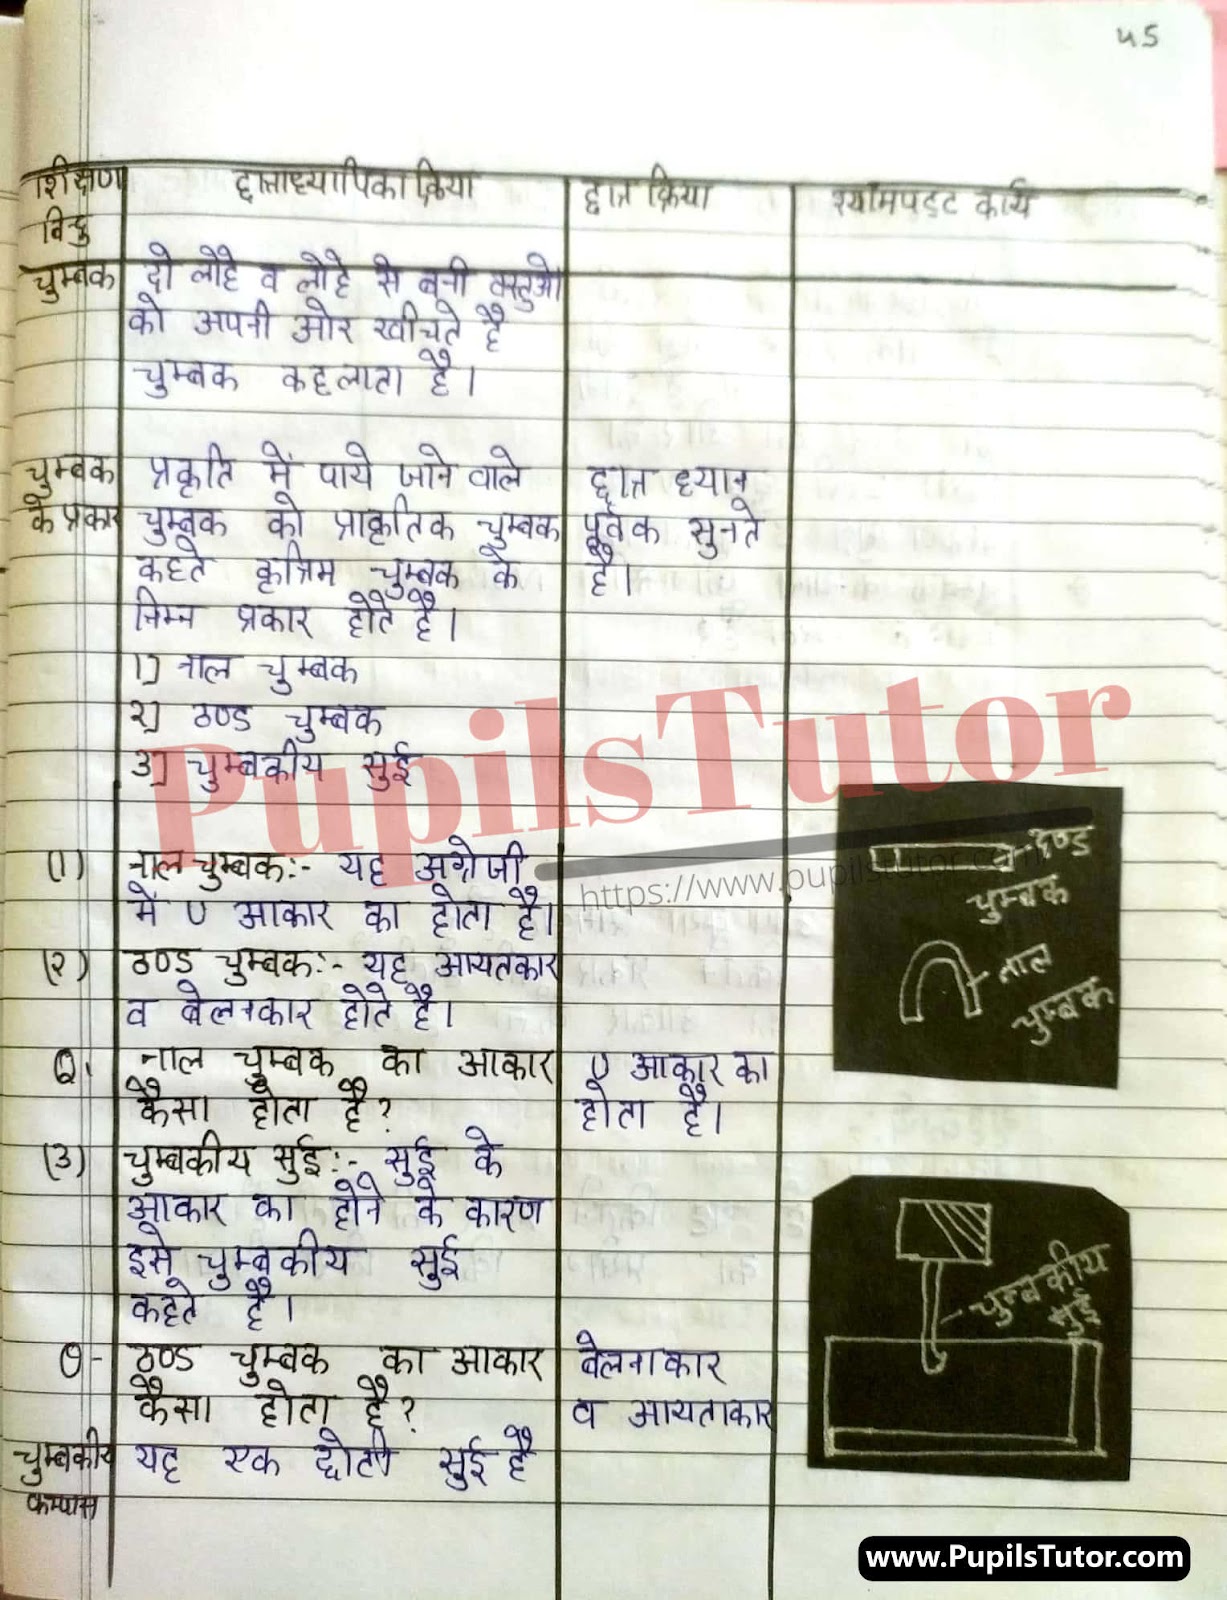 45
शिक्षण छात्राध्यापिका क्रिया छात्र क्रिया श्यामपट्ट कार्य
बिन्दु
चुम्बक दो लोहे व लोहे से बनी वस्तुओ
को अपनी ओर खीचते है
चुम्बक कहलाता है।
चुम्बक प्रकृति में पाये जाने वाले छात्र ध्यान
के प्रकार चुम्बक को प्राकृतिक चुम्बक पूर्वक सुनते
कहते कृत्रिम चुम्बक के है।
निम्न प्रकार होते है।
1) नाल चुम्बक
२) ठण्ड चुम्बक
3) चुम्बकीय सुई
PupilsTutor
https://www.pupilstutor.com
(1) नाल चुम्बक:- यह अग्रेजी
में U आकार का होता है।
(२) ठण्ड चुम्बक:- यह आयतकार
व बेलनकार होते है।
दण्ड
चुम्बक
नाल
चुम्बक
Q. नाल चुम्बक का आकार U आकार का
कैसा होता है? होता है।
(3) चुम्बकीय सुई:- सुई के
आकार का होने के कारण
इसे चुम्बकीय सुई
कहते है।
चुम्बकीय
सुई
Q- ठण्ड चुम्बक का आकार बेलनाकार
कैसा होता है? व आयताकार
चुम्बकीय यह एक छोटी सुई है
कम्पास
www.PupilsTutor.com